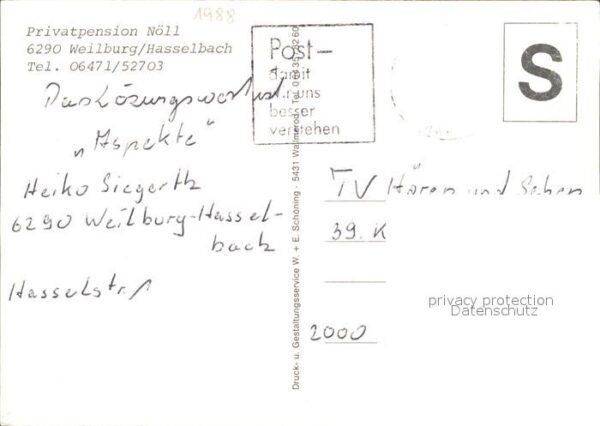 1988
Privatpension Nöll
6290 Weilburg/Hasselbach
Tel. 06471/52703
Post-
damit
wir uns
besser
verstehen
S
Das Lösungswort ist
„Aspekte"
Heiko Siegertz
6290 Weilburg-Hassel-
back
Hasselstr. 1
Druck- u. Gestaltungsservice W. + E. Schöning - 5431 Wallmerod, Tel.
TV Hören und Sehen
39. K
2000
privacy protection
Datenschutz